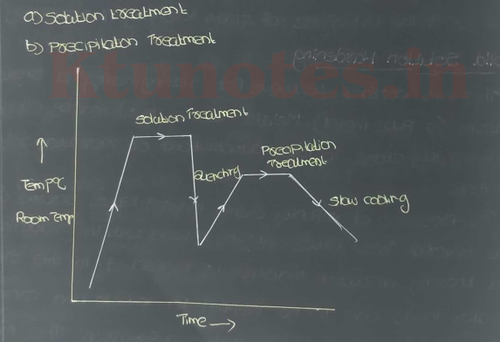 a) Solution treatment
b) Precipitation Treatment
Ktunotes.in
Solution Treatment
Precipitation
Treatment
Quenching
Temp°C
Slow cooling
Room Temp
Time